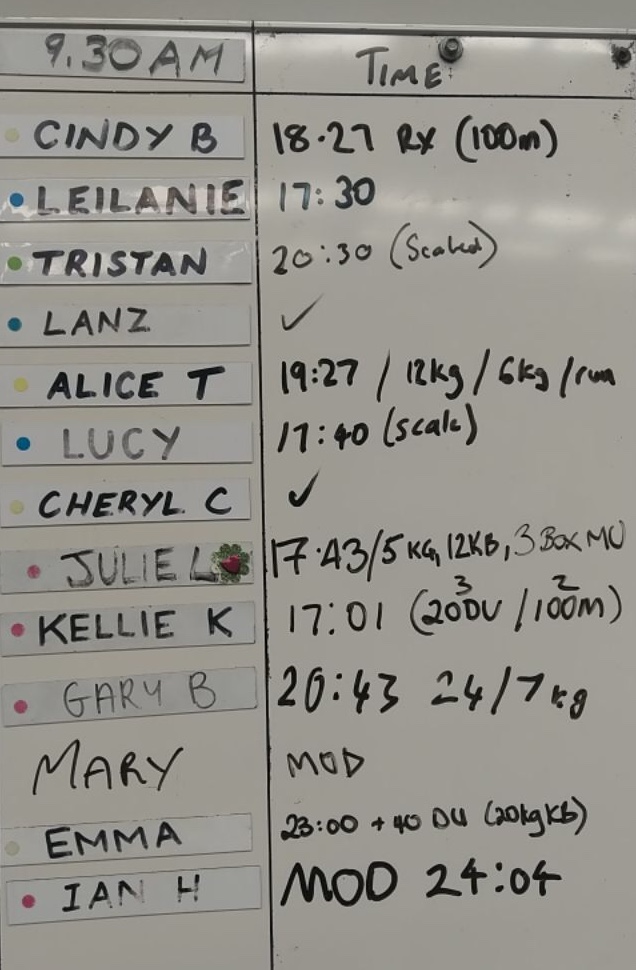 9.30AM TIME
CINDY B 18.27 RX (100m)
LEILANIE 17:30
TRISTAN 20:30 (Scaled)
LANZ ✓
ALICE T 19:27 / 12kg / 6kg / run
LUCY 17:40 (scale)
CHERYL C ✓
JULIE L 17.43/5KG, 12KB, 3 BOX MU
3 2
KELLIE K 17:01 (20DU / 100M)
GARY B 20:43 24/7kg
MARY MOD
EMMA 23:00 + 40 DU (20kg Kb)
IAN H MOD 24:04